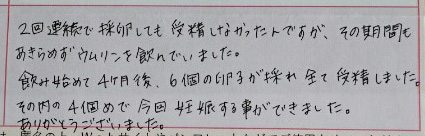 2回連続で採卵しても受精しなかったんですが、その期間も
あきらめずウムリンを飲んでいました。
飲み始めて4ヶ月後、6個の卵子が採れ全て受精しました。
その内の4個めで今回妊娠する事ができました。
ありがとうございました。